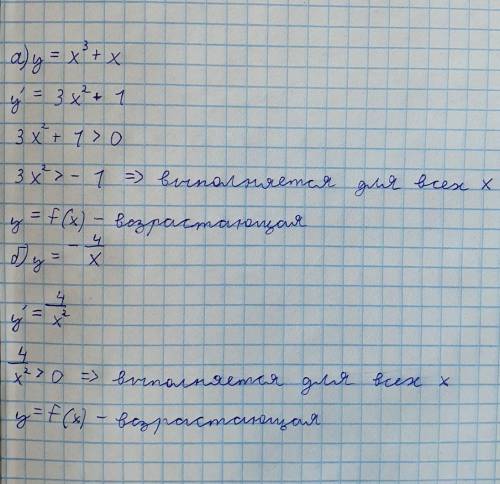 а) y = x³ + x
y' = 3x² + 1
3x² + 1 > 0
3x² > - 1 => выполняется для всех x
y = f(x) - возрастающая
б) y = - 4/x
y' = 4/x²
4/x² > 0 => выполняется для всех x
y = f(x) - возрастающая